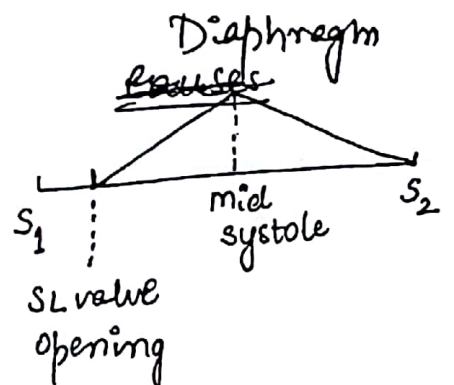 Diaphregm
S₁
mid
systole
S₂
SL valve
opening